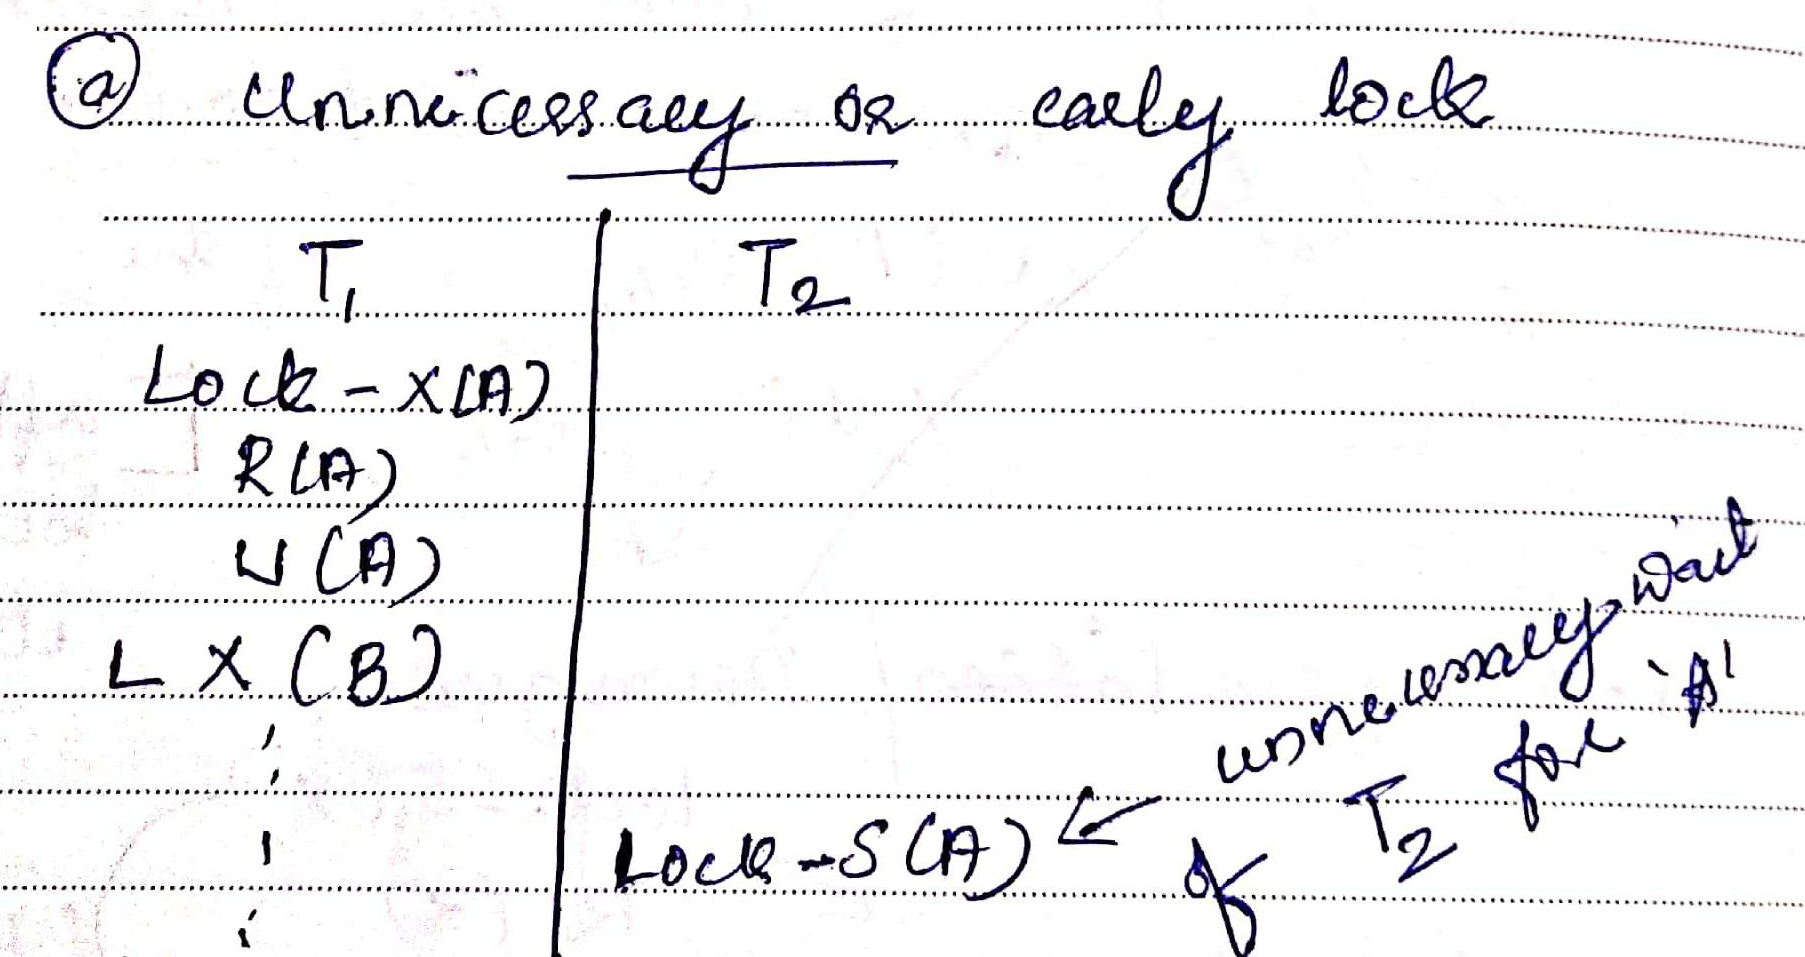 a Unnecessary or early lock
T1 T2
Lock - X(A)
R(A)
W(A)
L X (B)
Lock - S(A) ← unnecessary wait
of T2 for 'A'